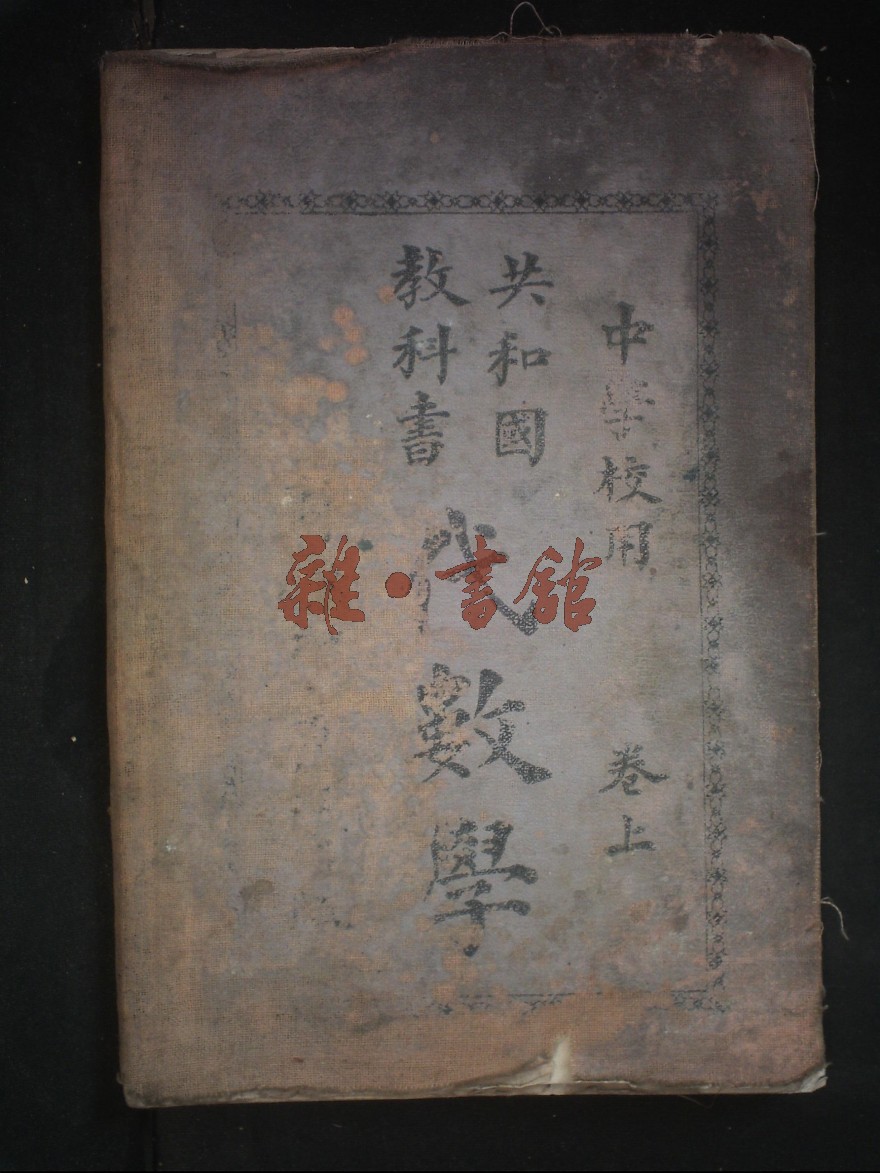 中學校用　卷上
共和國
教科書
代數學
雜·書館